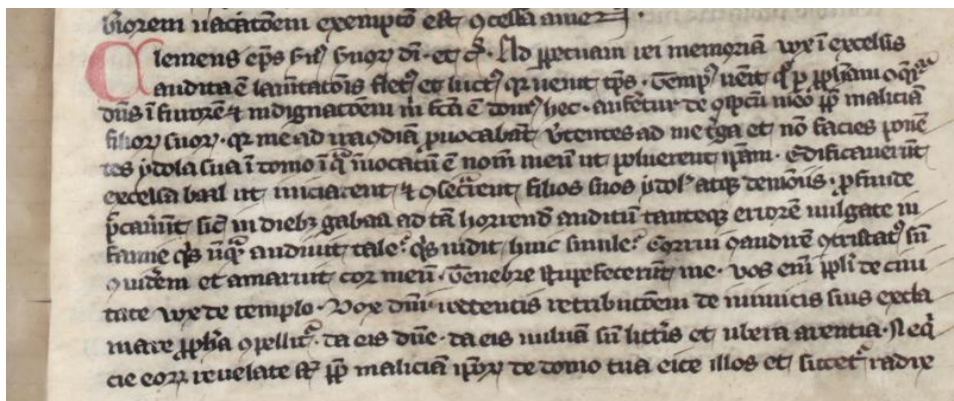 b̄iorem uacac̄oem exempto est ꝯcessa a me ⁊c̄.
Clemens ep̄s s̾us s̾uor̄ dī · et c̄ · Ad ꝑpetuam rei memoriā vox ī excelsis
audita ē lamētac̄ois flet᷒ et luct᷒ qr uenit tp̄s · Temp᷒ ueīt q° ꝑ ꝓph̄am ꝯq̄rit᷑
dūs ī furorē ⁊ indignac̄oem m̄ fc̄a ē dom᷒ hec · aufe᷑tur de ꝯspc̄u meo ꝓp̄ maliciā
filior̄ suor̄ · qr me ad iracūdiā ꝓuocabāt v̄tentes ad me t̾ga et nō facies ponē
tes ydola sua ī domo ī qᵃ īuocatū ē nom̄ meū ut polluerent ip̄am · Edificauerūt
excelsa baal ut iniciarent ⁊ ꝯsec̄rent filios suos ydol̄ atqꝫ demoniis · ꝓfunde
p̄cauerūt sic̄ in diebꝫ gabaa ad tā horrendū auditū tanteqꝫ errorē uulgate in
famie q̄s ūqᵃ audiuit tale? q̄s uidit huic simile? Corrui ꝯaudirē ꝯtristat᷒ sū
ꝯ uiderem et amaruit cor meū · Tenebre stupefecerūt me · vos enī ppl̄i de ciui
tate uox de templo · Vox dn̄i · reddentis retribuc̄oem de inimicis suis excla
mare ꝓph̄a ꝯpellit᷑ · da eis dn̄e · da eis uuluā sn̄ lib̾is et ubera arentia · Neq̄
cie eor̄ reuelate st̄ ꝓp̄ maliciā ip̄or̄ de domo tua eice illos et siccet᷑ radix